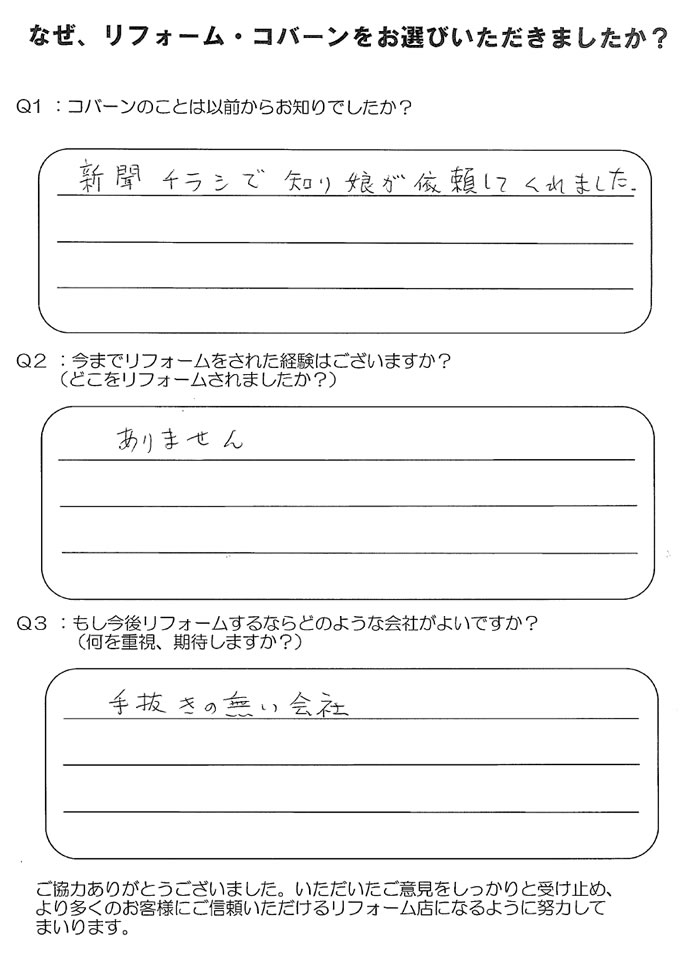 なぜ、リフォーム・コバーンをお選びいただきましたか？
Q1 ：コバーンのことは以前からお知りでしたか？
新聞チラシで知り娘が依頼してくれました.
Q2 ：今までリフォームをされた経験はございますか？
（どこをリフォームされましたか？）
ありません
Q3 ：もし今後リフォームするならどのような会社がよいですか？
（何を重視、期待しますか？）
手抜きの無い会社
ご協力ありがとうございました。いただいたご意見をしっかりと受け止め、
より多くのお客様にご信頼いただけるリフォーム店になるように努力して
まいります。